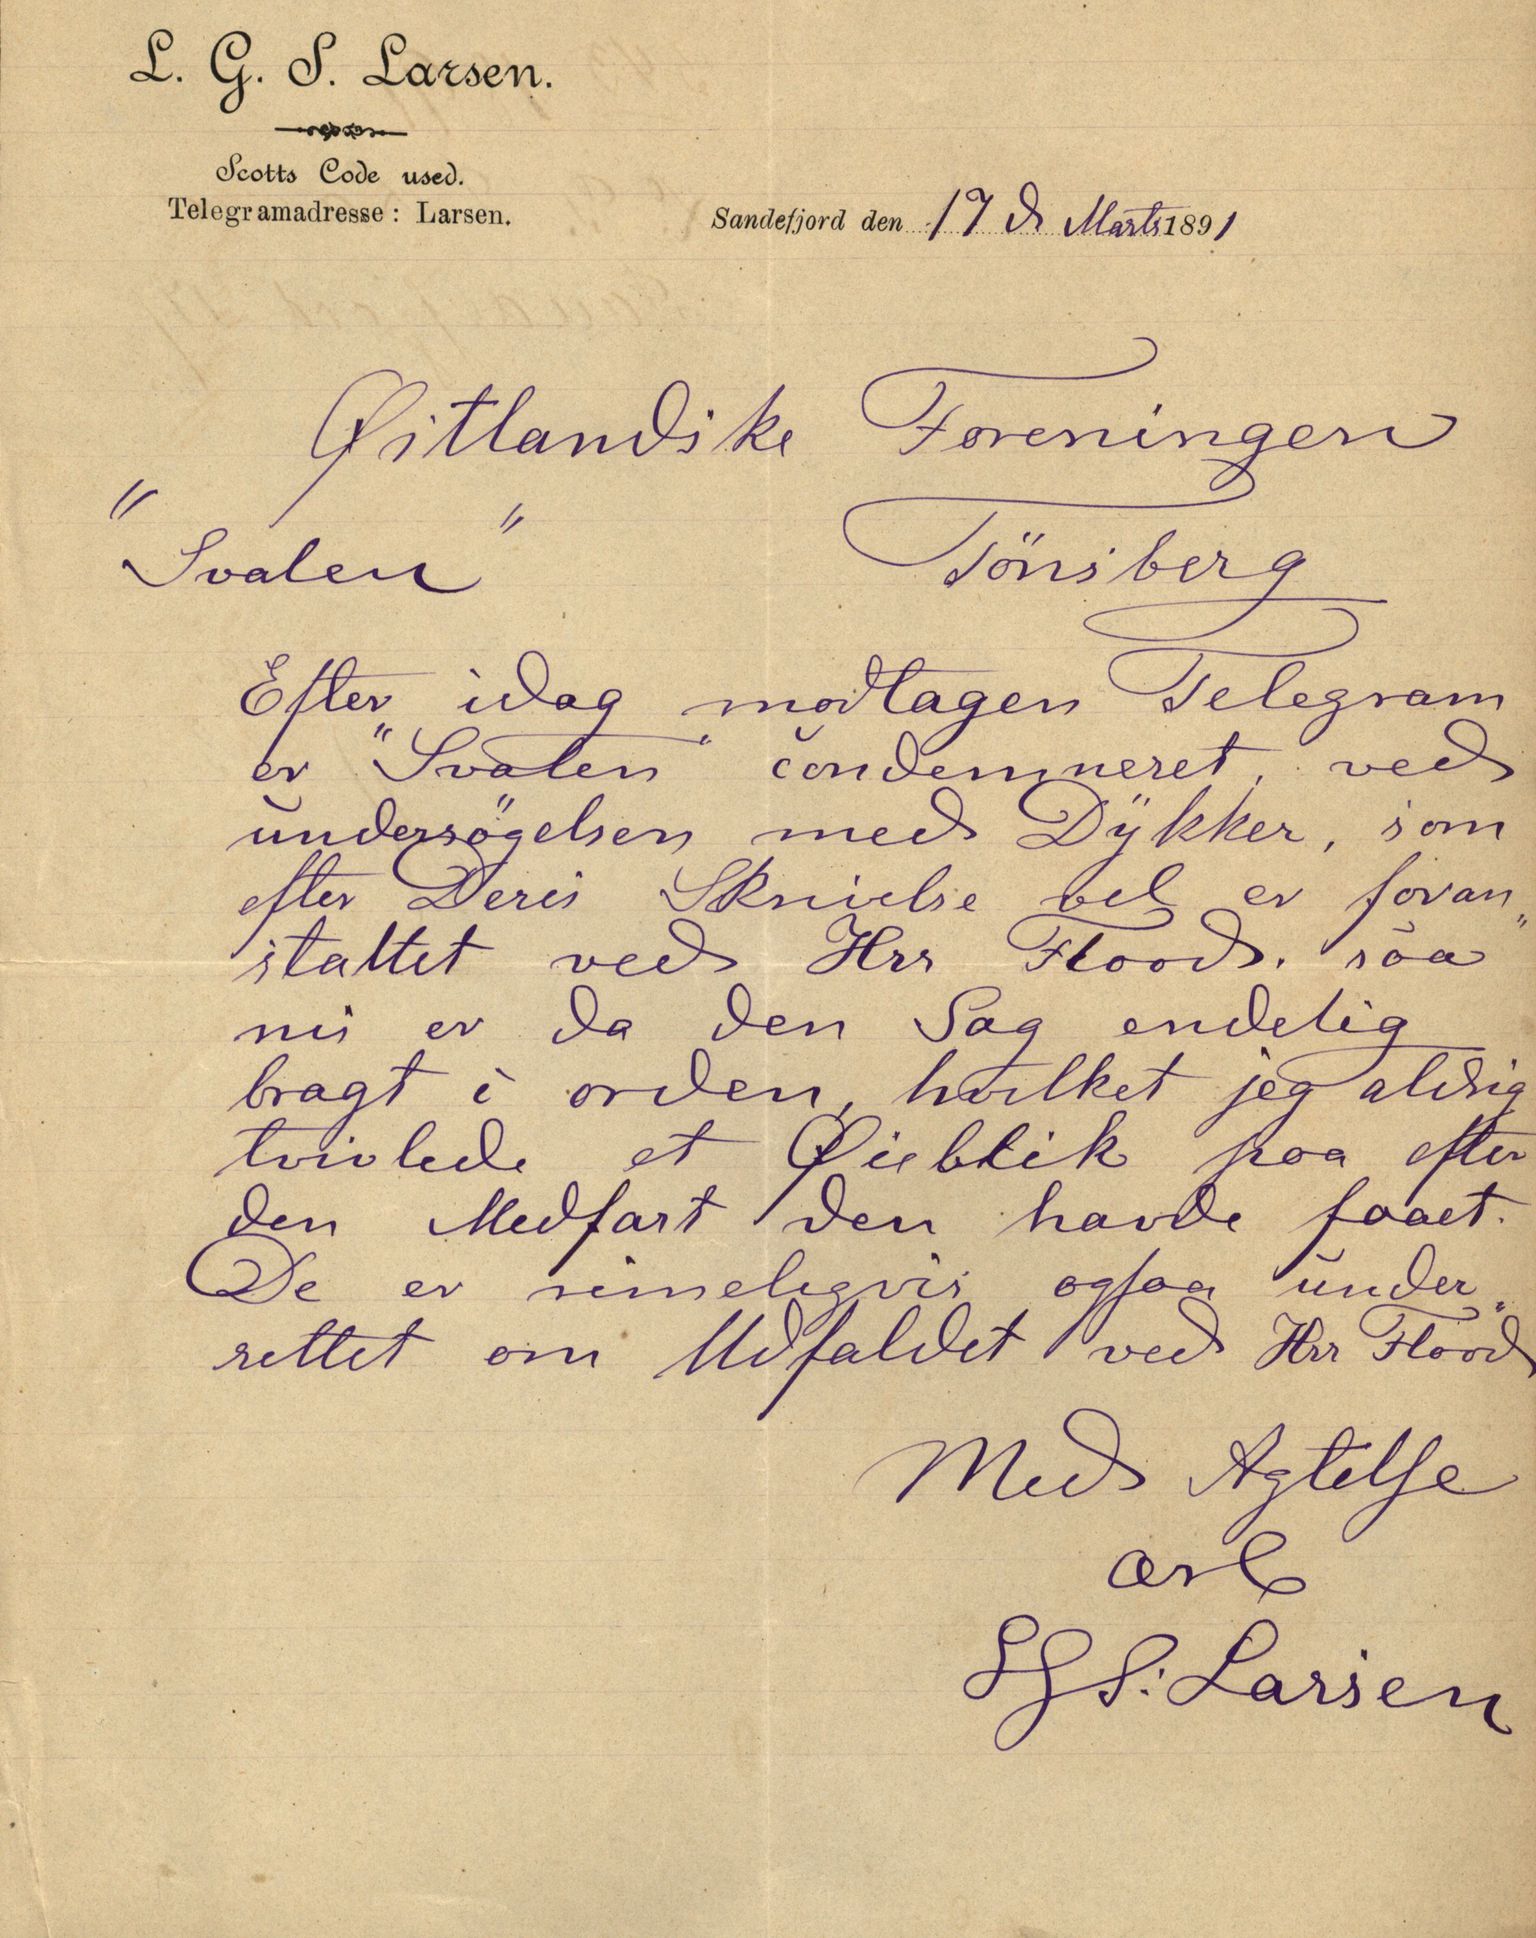 L. G. S. Larsen.
Scotts Code used.
Telegramadresse: Larsen.
Sandefjord den 17 d Marts 1891
Østlandske Foreningen
"Svalen"
Tönsberg
Efter idag modtagen Telegram
er "Svalen" condemneret, ved
undersögelsen med Dÿkker, som
efter Deres Skrivelse vel er foran„
staltet ved Hrr Flood. saa
nu er da den Sag endelig
bragt i orden, hvilket jeg aldrig
tvivlede et Øieblik paa efter
den Medfart den havde faaet.
De er rimeligvis ogsaa under„
rettet om Udfaldet ved Hrr Flood
Med Agtelse
ærb
LGS. Larsen